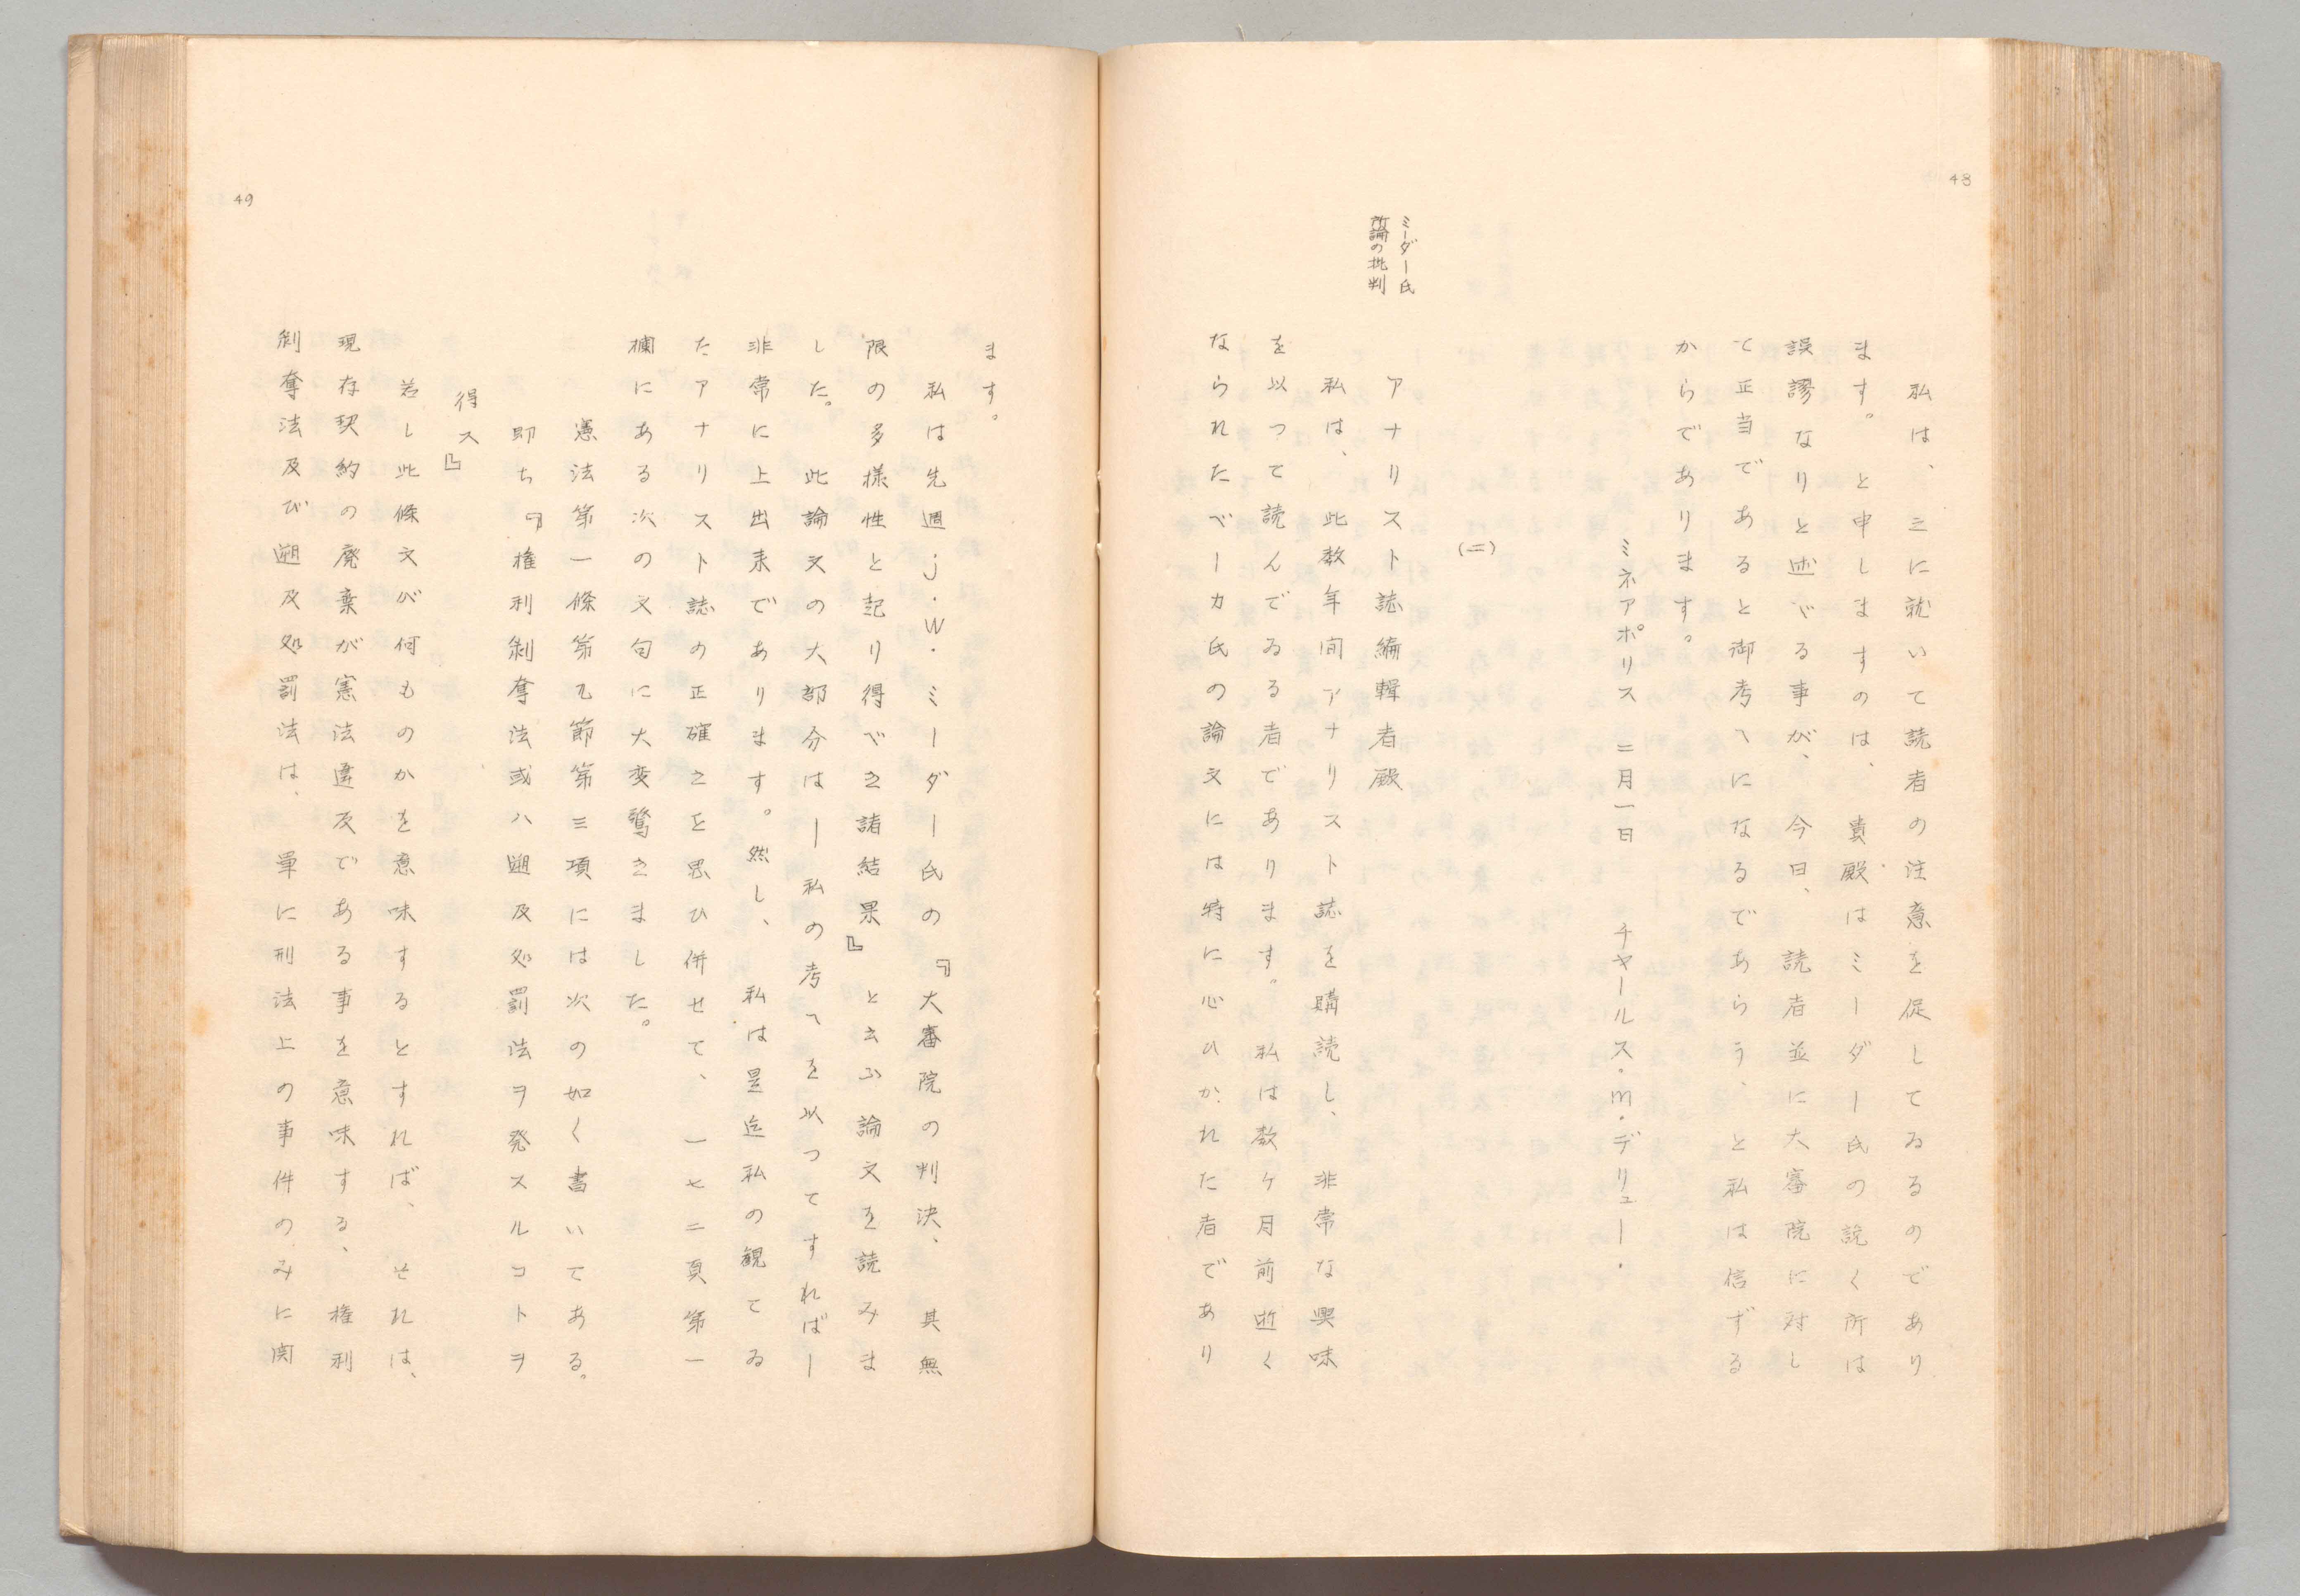 48
私は、之に就いて読者の注意を促してゐるのであり
ます。と申しますのは、貴殿はミーダー氏の説く所は
誤謬なりと述べる事が、今日、読者並に大審院に対し
て正当であると御考へになるであらう、と私は信ずる
からであります。
ミネアポリス 二月一日 チャールス・m・デリュー・
(二)
ミーダー氏
所論の批判
アナリスト誌編輯者殿
私は、此数年間アナリスト誌を購読し、非常な興味
を以つて読んでゐる者であります。私は数ヶ月前逝く
なられたベーカ氏の論文には特に心ひかれた者であり
49
ます。
私は先週j.W.ミーダー氏の『大審院の判決、其無
限の多様性と起り得べき諸結果』と云ふ論文を読みま
した。此論文の大部分はー私の考へを以つてすればー
非常に上出来であります。然し、私は是迄私の観てゐ
たアナリスト誌の正確さを思ひ併せて、一七二頁第一
欄にある次の文句に大変驚きました。
憲法第一條第九節第三項には次の如く書いてある。
即ち『権利剝奪法或ハ遡及処罰法ヲ発スルコトヲ
得ス』
若し此條文が何ものかを意味するとすれば、それは、
現存契約の廃棄が憲法違反である事を意味する、権利
剝奪法及び遡及処罰法は、単に刑法上の事件のみに関